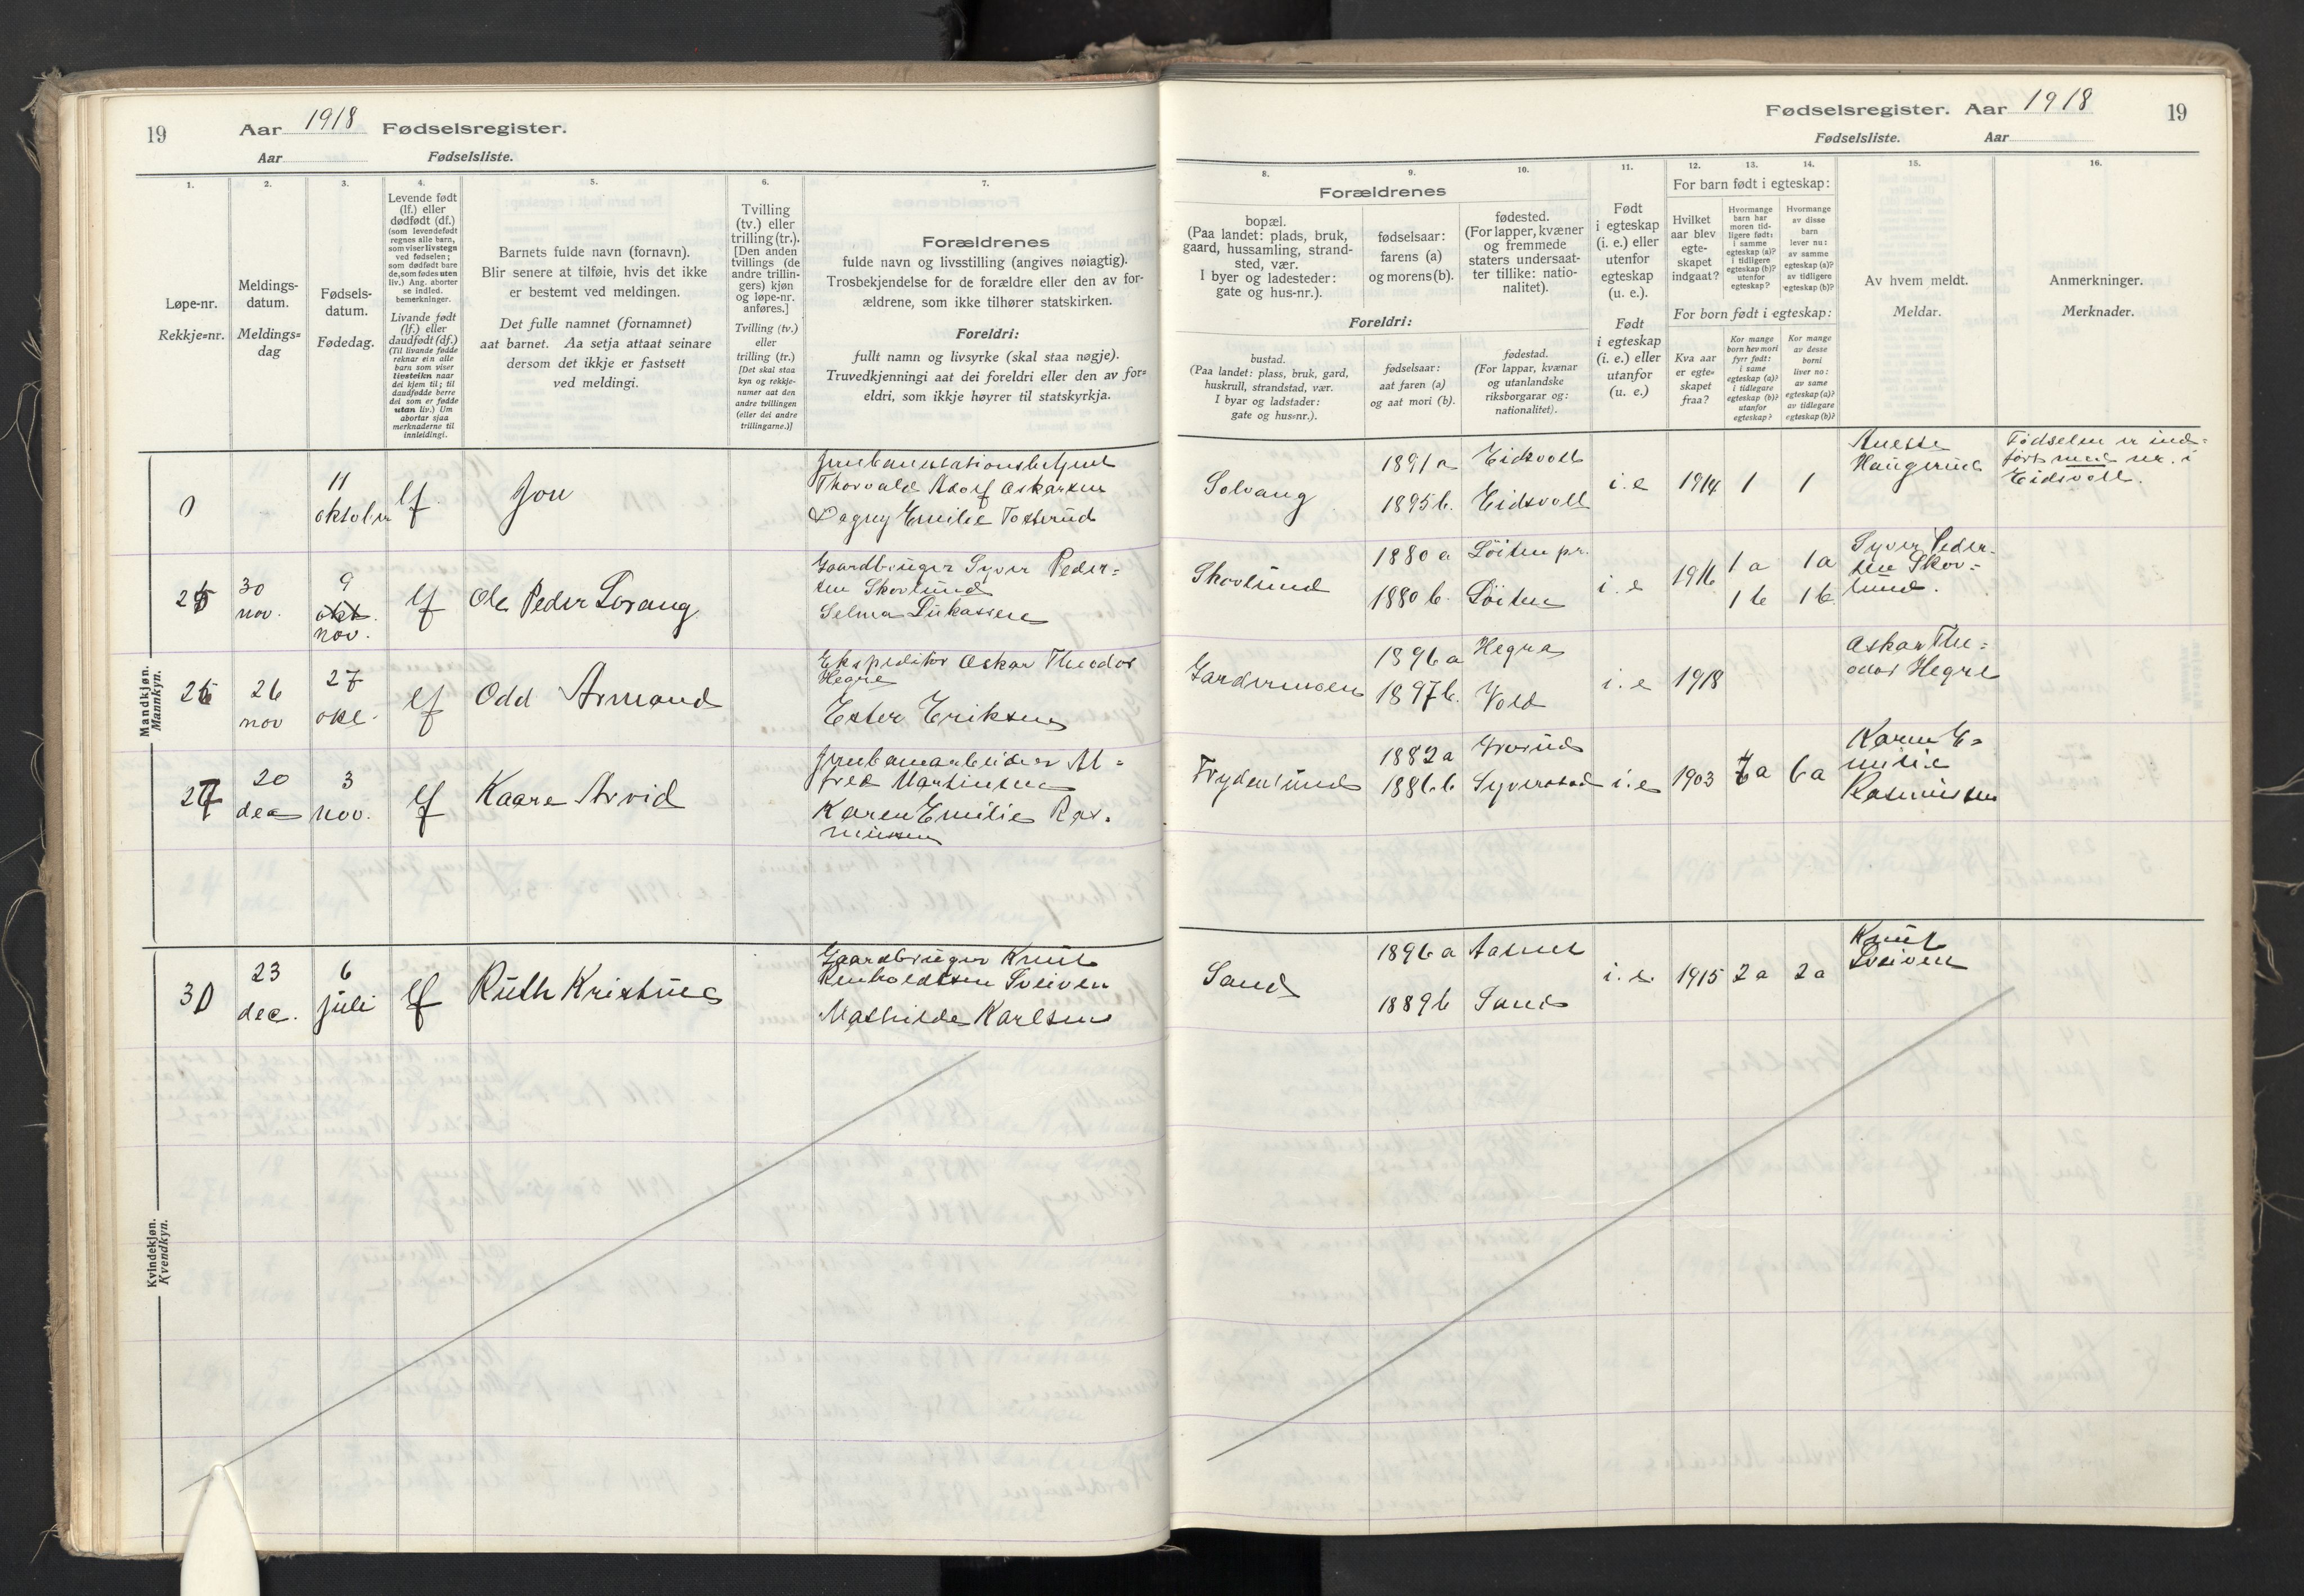 19
Aar 1918 Fødselsregister.
Aar Fødselsliste.
1.
2.
3.
4.
5.
6.
7.
Løpe-nr.
Rekkje=nr.
Meldings-
datum.
Meldings=
dag
Fødsels-
datum.
Fødedag.
Levende født
(lf.) eller
dødfødt (df.)
(som levendefødt
regnes alle barn,
som viser livstegn
ved fødselen;
som dødfødt bare
de, som fødes uten
liv.) Ang. aborter
se indled.
bemerkninger.
Livande født
(lf.) eller
daudfødt (df.)
(Til livande fødde
reknar ein alle
barn som viser
livsteikn naar
dei kjem til; til
daudfødde berre
dei som er fødde
utan liv.) Um
abortar sjaa
merknaderne til
innleidingi.
Barnets fulde navn (fornavn).
Blir senere at tilføie, hvis det ikke
er bestemt ved meldingen.
Det fulle namnet (fornamnet)
aat barnet. Aa setja attaat seinare
dersom det ikkje er fastsett
ved meldingi.
Tvilling
(tv.) eller
trilling (tr.).
[Den anden
tvillings (de
andre trillin-
gers) kjøn
og løpe-nr.
anføres.]
Tvilling (tv.)
eller
trilling (tr.)
[Det skal staa
kyn og rekkje-
numer aat den
andre tvillingen
(eller dei andre
trillingarne.)]
Forældrenes
fulde navn og livsstilling (angives nøiagtig).
Trosbekjendelse for de forældre eller den av for-
ældrene, som ikke tilhører statskirken.
Foreldri:
fullt namn og livsyrke (skal staa nøgje).
Truvedkjenningi aat dei foreldri eller den av for=
eldri, som ikkje høyrer til statskyrkja.
Mandkjøn.
Mannkyn.
0
11
oktober
lf.
Jon
Jernbanestationsbetjent
Thorvald Adolf Oskarsen
Dagny Emilie Tosterud
25
30
nov.
9
okt.
nov.
lf
Ole Peder Lorang
Gaardbruger Syver Peder=
sen Skovlund
Selma Lukassen
26
26
nov
27
okt.
lf
Odd Armand
Ekspeditør Oskar Theodor
Hegre
Ester Eriksen
27
20
dec
3
nov.
lf
Kaare Arvid
Jernbanearbeider Al=
fred Martinsen
Karen Emilie Ras.
mussen
Kvindekjøn.
Kvendkyn.
30
23
dec.
6
juli
lf
Ruth Kristine
Gaardbruger Knut
Renholdtsen Sveiven
Mathilde Karlsen
Fødselsregister. Aar 1918
19
Fødselsliste. Aar
8.
9.
10.
11.
12.
13.
14.
15.
16.
Forældrenes
bopæl.
(Paa landet: plads, bruk,
gaard, hussamling, strand-
sted, vær.
I byer og ladesteder:
gate og hus-nr.).
fødselsaar:
farens (a)
og morens (b).
fødested.
(For lapper, kvæner
og fremmede
staters undersaat-
ter tillike: natio-
nalitet).
Foreldri:
bustad.
(Paa landet: plass, bruk, gard,
huskrull, strandstad, vær.
I byar og ladstader:
gate og hus=nr.).
fødselsaar:
aat faren (a)
og aat mori (b).
fødestad.
(For lappar, kvænar
og utanlandske
riksborgarar og:
nationalitet).
Født
i egteskap
(i. e.) eller
utenfor
egteskap
(u. e.).
Født
i egteskap
(i. e.) eller
utanfor
(u. e.)
For barn født i egteskap:
Hvilket
aar blev
egte-
skapet
indgaat?
Hvormange
barn har
moren tid-
ligere født:
i samme
egteskap (a)?
i tidligere
egteskap (b)?
utenfor
egteskap?
Hvormange
av disse
barn
lever nu:
av samme
egteskap (a)?
av tidligere
egteskap (b)?
For born født i egteskap:
Kva aar
er egte=
skapet
fraa?
Kor mange
born hev mori
fyrr født:
i same
egteskap (a)?
i tidlegare
egteskap (b)?
utanfor
egteskap?
Kor mange
av desse
borni
liver no:
av same
egteskap (a)?
av tidlegare
egteskap (b)?
Av hvem meldt.
Meldar.
Anmerkninger.
Merknader.
Solvang
1891 a
1895 b.
Eidsvoll
Eidsvoll
i. e
1914
1
1
Anette
Haugerud
Fødselen er ind=
ført med nr. i
Eidsvoll.
Skovlund
1880 a
1880 b.
Löiten pr.
Löiten
i. e
1916
1 a
1 b
1 a
1 b
Syver Peder-
sen Skov=
lund.
Gardermoen
1896 a
1897 b.
Hegra
Vold
i. e
1918
Oskar The=
odor Hegre
Frydenlund
1882 a
1886 b
Syverstad
i. e
1903
7 a
6 a
Karen E=
milie
Rasmussen
Sand
1896 a
1889 b
Aasnes
Sand
i. e.
1915
2 a
2 a
Knut
Sveiven